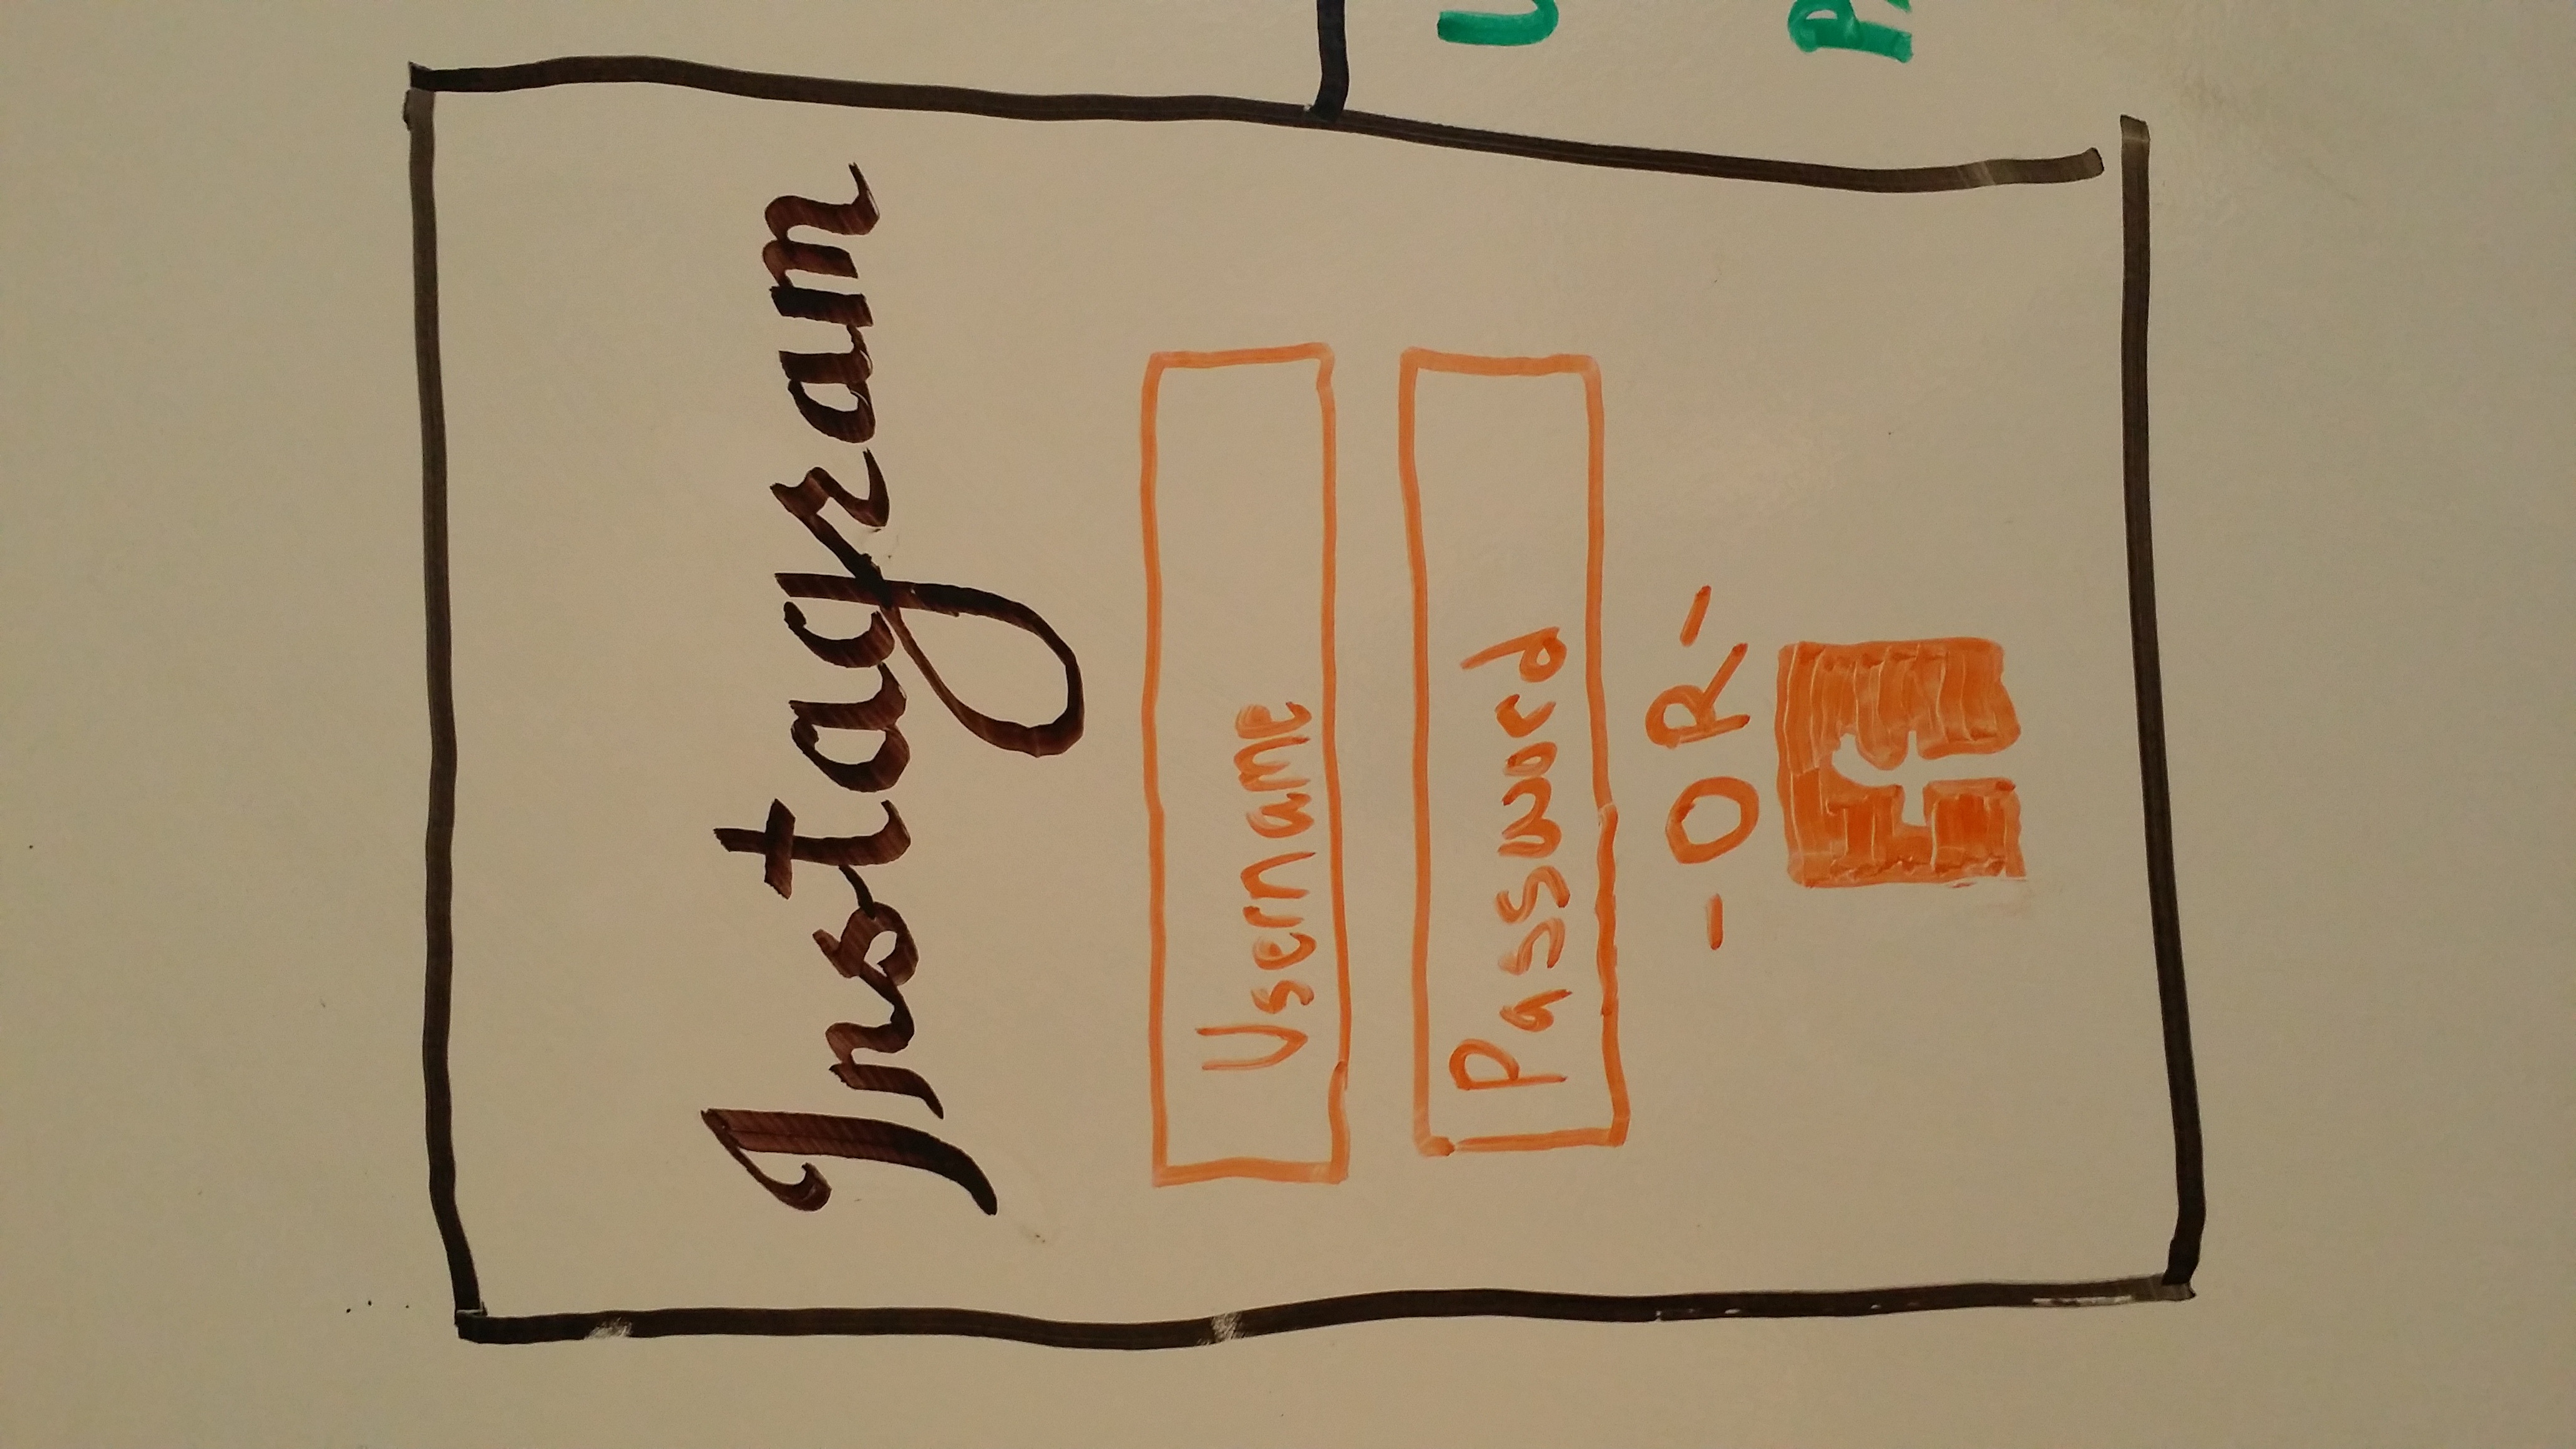 Instagram
Username
Password
-OR-
f